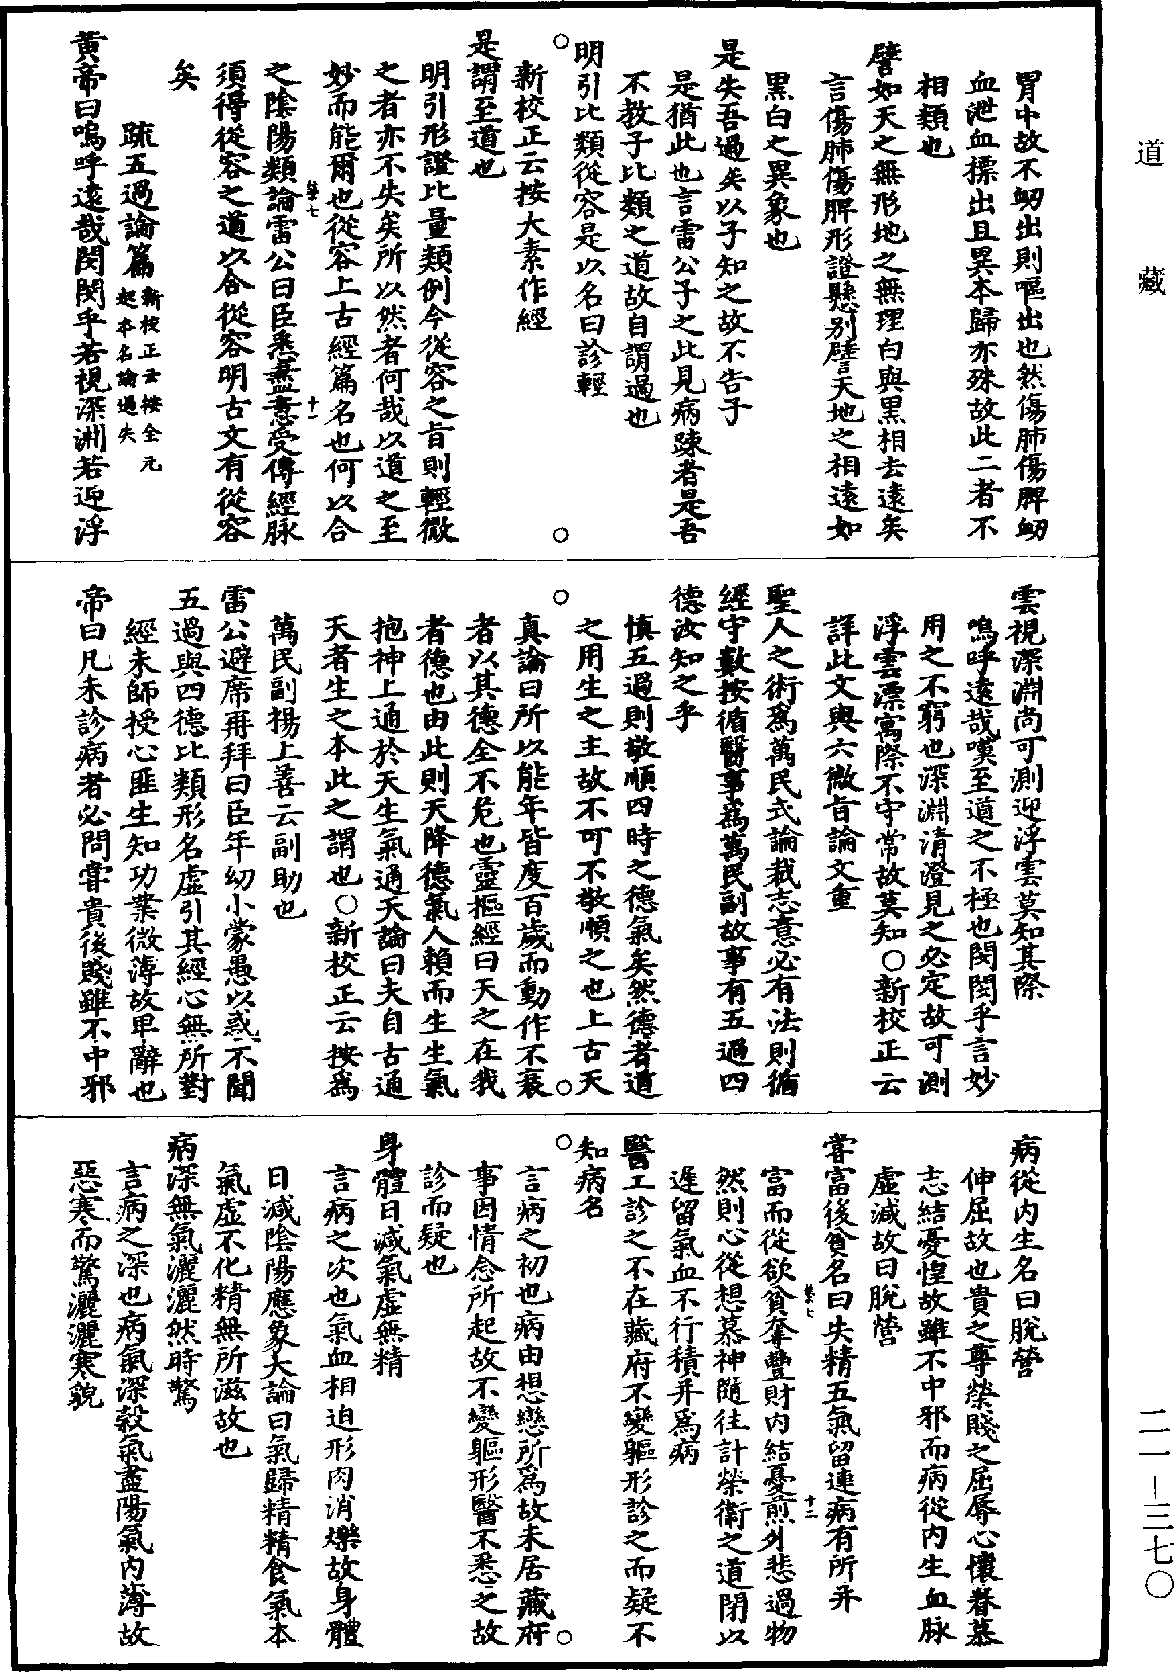 道藏
胃中故不衂出則嘔出也然傷肺傷脾衂
血泄血摽出且異本歸亦殊故此二者不
相類也
譬如天之無形地之無理白與黑相去遠矣
言傷肺傷脾形證懸别譬天地之相遠如
黑白之異象也
是失吾過矣以子知之故不告子
是猶此也言雷公子之此見病踈者是吾
不教子比類之道故自謂過也
明引比類從容是以名曰診輕
新校正云按太素作經
是謂至道也
明引形證比量類例今從容之旨則輕微
之者亦不失矣所以然者何哉以道之至
妙而能爾也從容上古經篇名也何以合
之陰陽類論雷公曰臣悉盡意受傳經脉
須得從容之道以合從容明古文有從容
矣
卷七
十一
疏五過論篇新校正云按全元
起本名論過失
黄帝曰嗚呼遠哉閔閔乎若視深淵若迎浮
雲視深淵尚可測迎浮雲莫知其際
嗚呼遠哉嘆至道之不極也閔閔乎言妙
用之不窮也深淵清澄見之必定故可測
浮雲漂寓際不守常故莫知○新校正云
詳此文與六微旨論文重
聖人之術爲萬民式論裁志意必有法則循
經守數按循醫事爲萬民副故事有五過四
德汝知之乎
慎五過則敬順四時之德氣矣然德者道
之用生之主故不可不敬順之也上古天
真論曰所以能年皆度百歲而動作不衰
者以其德全不危也靈樞經曰天之在我
者德也由此則天降德氣人賴而生生氣
抱神上通於天生氣通天論曰夫自古通
天者生之本此之謂也○新校正云按爲
萬民副楊上善云副助也
雷公避席再拜曰臣年幼小蒙愚以惑不聞
五過與四德比類形名虛引其經心無所對
經未師授心匪生知功業微薄故卑辭也
帝曰凡未診病者必問嘗貴後賤雖不中邪
病從内生名曰脱營
伸屈故也貴之尊榮賤之屈辱心懷眷慕
志結憂惶故雖不中邪而病從内生血脉
虛減故曰脱營
嘗富後貧名曰失精五氣留連病有所并
富而從欲貧奪豐財内結憂煎外悲過物
然則心從想慕神隨往計榮衛之道閉以
遲留氣血不行積并爲病
卷七
十二
醫工診之不在藏府不變軀形診之而疑不
知病名
言病之初也病由想戀所爲故未居藏府
事因情念所起故不變軀形醫不悉之故
診而疑也
身體日減氣虛無精
言病之次也氣血相迫形肉消爍故身體
日減陰陽應象大論曰氣歸精精食氣本
氣虛不化精無所滋故也
病深無氣灑灑然時驚
言病之深也病氣深穀氣盡陽氣内薄故
惡寒而驚灑灑寒貌
二一－三七〇